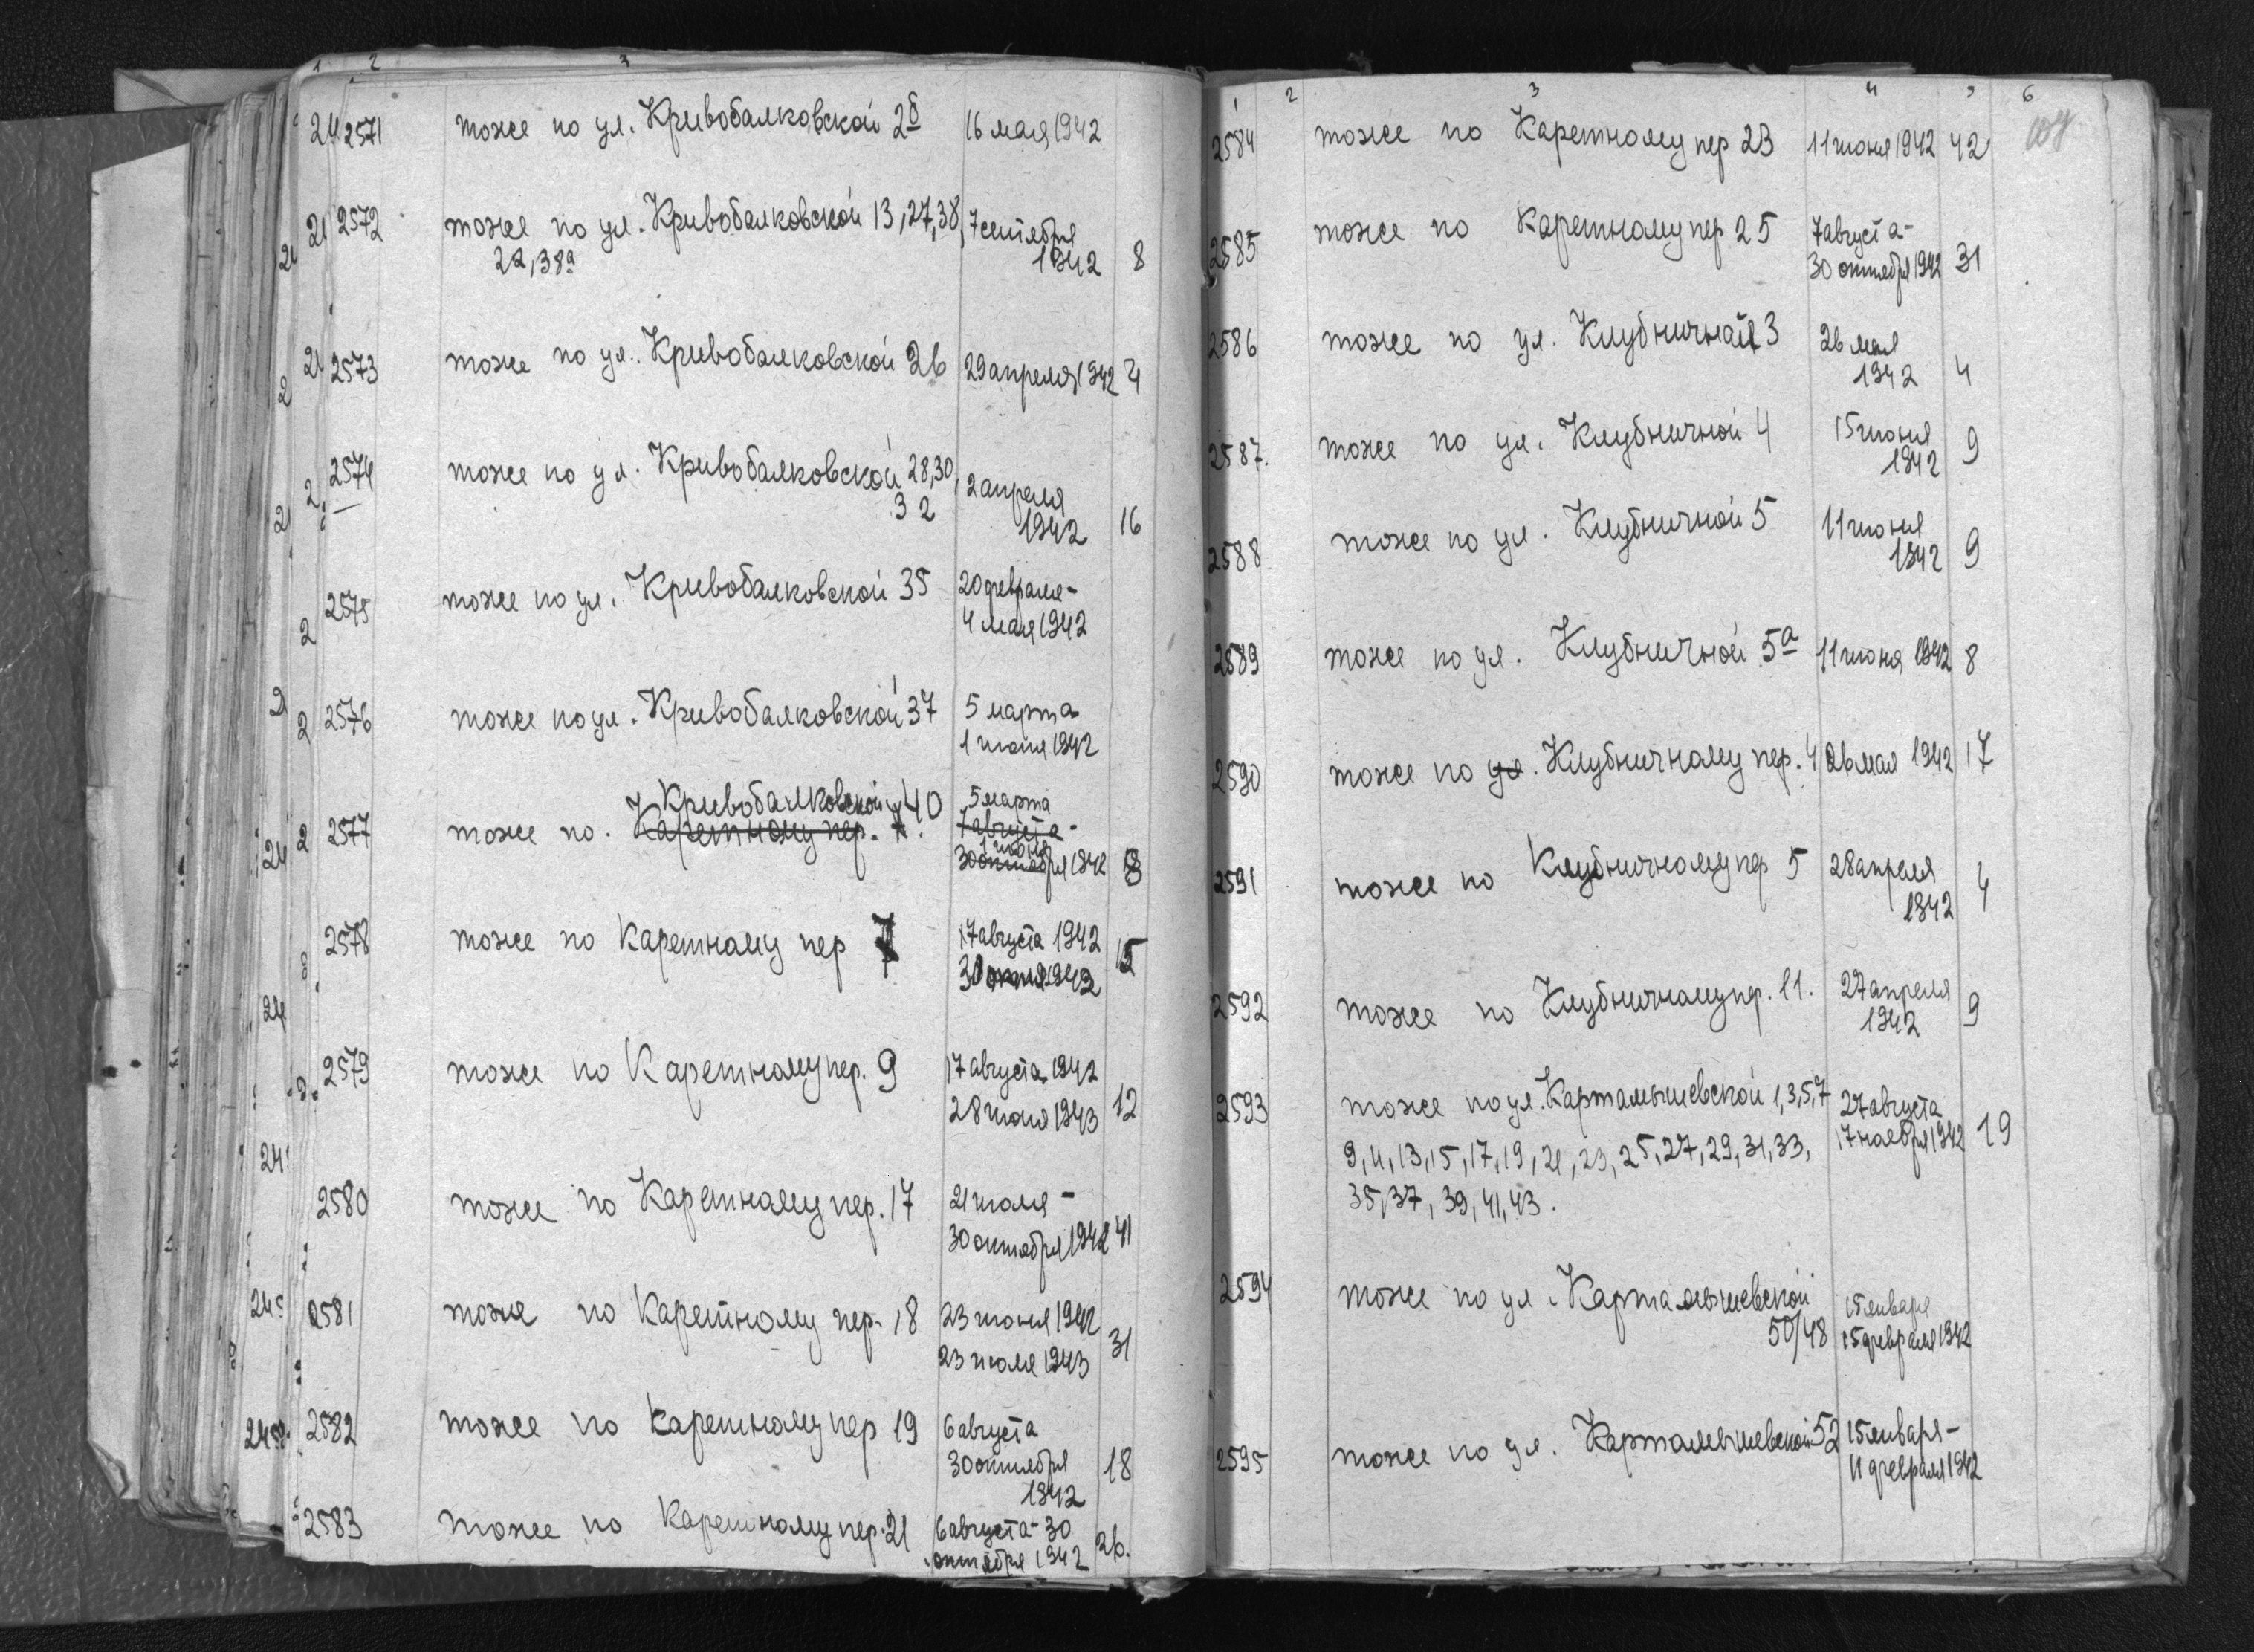 1 2 3
2571 тоже по ул. Кривобалковской 2б 16 мая 1942
2572 тоже по ул. Кривобалковской 13, 27, 38, 7 сентября
22, 38а 1942 8
2573 тоже по ул. Кривобалковской 26 29 апреля 1942 4
2574 тоже по ул. Кривобалковской 28, 30, 2 апреля
32 1942 16
2575 тоже по ул. Кривобалковской 35 20 февраля-
4 мая 1942
2576 тоже по ул. Кривобалковской 37 5 марта
1 июня 1942
Кривобалковской 40 5 марта
2577 тоже по. Каретному пер. 7. 7 августа-
1 июня
30 октября 1942 8
2578 тоже по Каретному пер 7 17 августа 1942
1942 15
2579 тоже по Каретному пер. 9 17 августа 1942
28 июля 1943 12
2580 тоже по Каретному пер. 17 21 июля -
30 октября 1942 41
2581 тоже по Каретному пер. 18 23 июня 1942
23 июля 1943 31
2582 тоже по Каретному пер 19 6 августа
30 октября 18
1942
2583 тоже по Каретному пер. 21 6 августа - 30
октября 1942 26.
1 2 3 4 5 6
2584 тоже по Каретному пер 23 11 июня 1942 42
2585 тоже по Каретному пер 25 7 августа-
30 октября 1942 31
2586 тоже по ул. Клубничная 3 26 мая
1942 4
2587. тоже по ул. Клубничной 4 15 июня
1942 9
2588 тоже по ул. Клубничной 5 11 июня
1942 9
2589 тоже по ул. Клубничной 5а 11 июня 1942 8
2590 тоже по ул. Клубничному пер. 4 26 мая 1942 17
2591 тоже по Клубничному пер 5 28 апреля
1942 4
2592 тоже по Клубничному пер. 11. 27 апреля
1942 9
2593 тоже по ул. Картамышевской 1, 3, 5, 7 27 августа
9, 11, 13, 15, 17, 19, 21, 23, 25, 27, 29, 31, 33, 17 ноября 1942 19
35, 37, 39, 41, 43.
2594 тоже по ул. Картамышевской 15 января
50/48 15 февраля 1942
2595 тоже по ул. Картамышевской 52 15 января-
11 февраля 1942